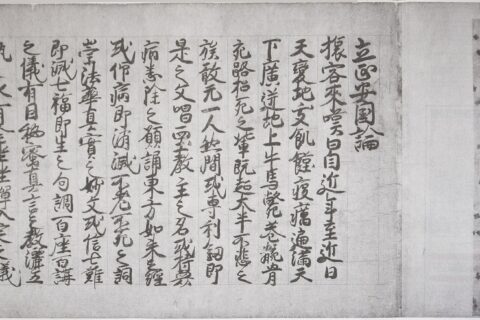 立正安国論
旅客來嘆曰自近年至近日
天變地夭飢饉疫癘遍滿天
下廣迸地上牛馬斃巷骸骨
充路招死之輩既超大半不悲之
族敢无一人然間或專利釼即
是之文唱西土教主之名或持衆
病悉除之願誦東方如來之經
或仰病即消滅不老不死之詞
崇法華真實之妙文或信七難
即滅七福即生之句調百座百講
之儀有因秘密真言之教灑五
瓶之水有全坐禪入定之儀